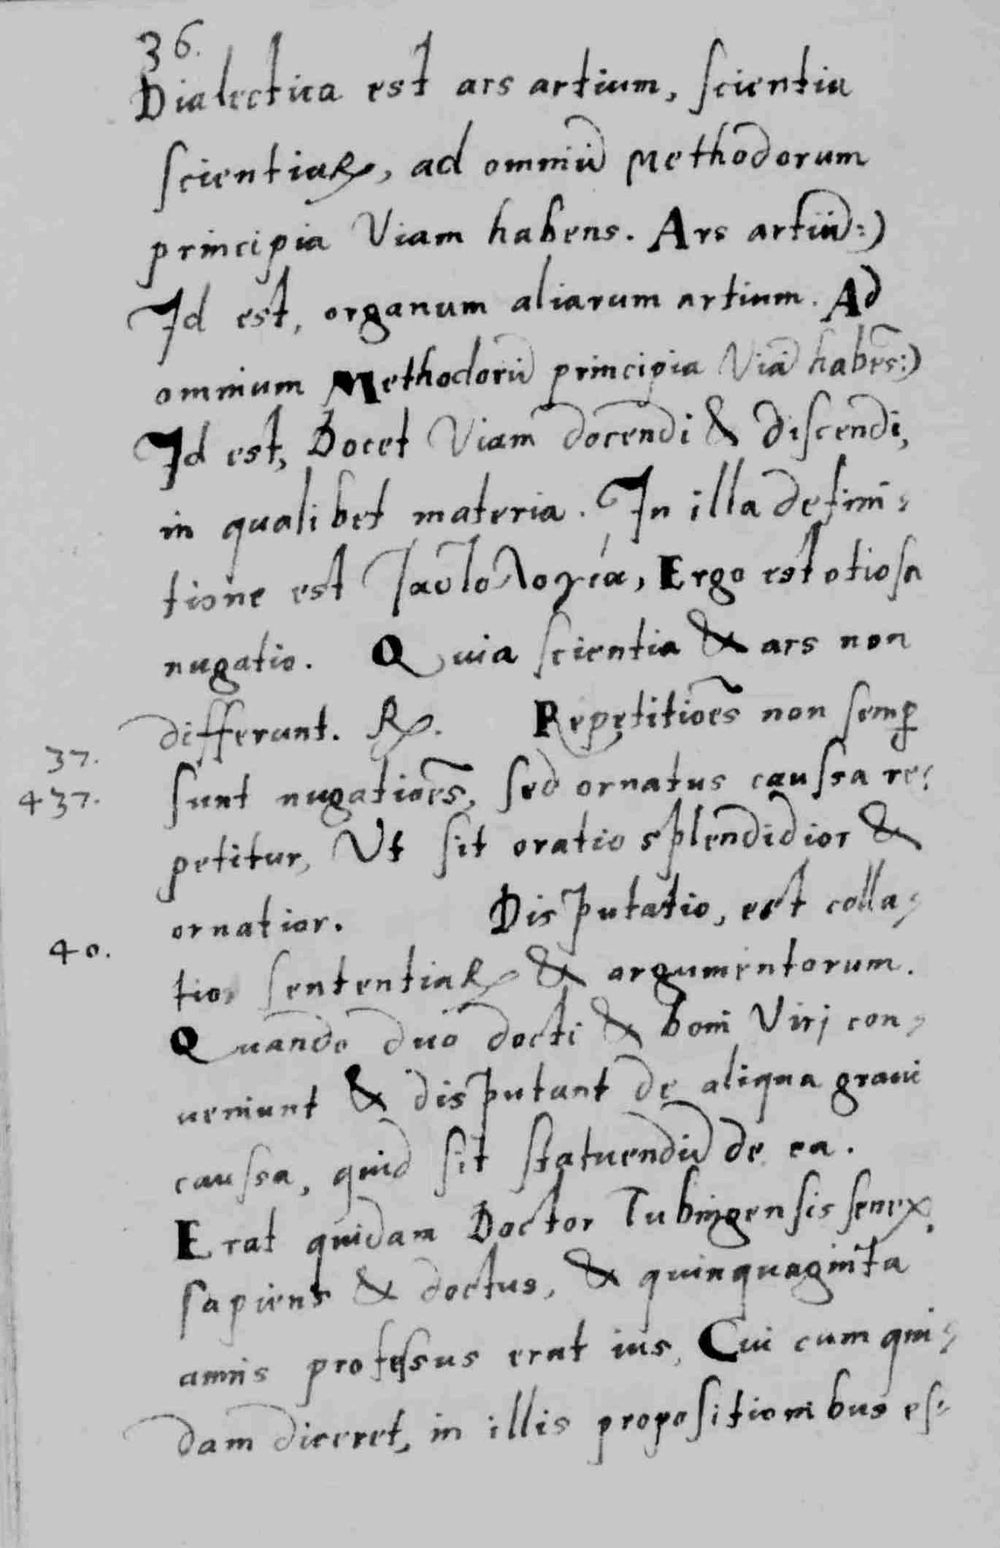 36.
Dialectica est ars artium, scientia
scientiaꝝ, ad omniũ Methodorum
principia Viam habens. Ars artiũ:)
Id est, organum aliarum artium. Ad
omnium Methodorũ principia Viã habẽs:)
Id est, Docet Viam docendi & discendi,
in qualibet materia. In illa defini-
tione est Ταυτολογία, Ergo est otiosa
nugatio. Quia scientia & ars non
differunt. ℞. Repetitioẽs non semꝑ
37.
437. sunt nugatioẽs, sed ornatus caussa re-
petitur, Ut sit oratio splendidior &
ornatior. Disputatio, est colla-
40.
tio sententiaꝝ & argumentorum.
Quando duo docti & boni Viri con-
ueniunt & disputant de aliqua graui
caussa, quid sit statuendũ de ea.
Erat quidam Doctor Tubingensis senex,
sapiens & doctus, & quinquaginta
annis professus erat ius, Cui cum qui-
dam diceret, in illis propositionibus es-